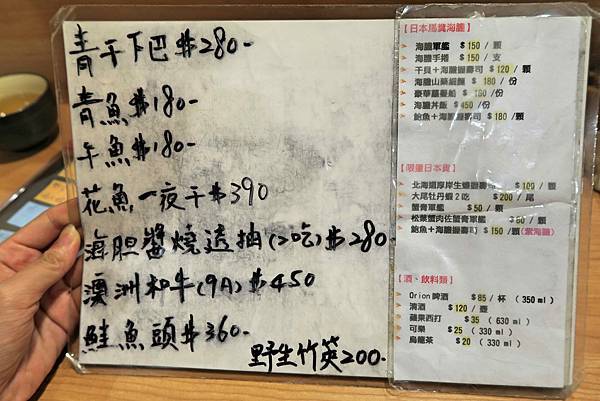 青干下巴$280-
青魚$180-
午魚$180-
花魚一夜干$390
海胆醬燒透抽(2吃)$280-
澳洲和牛(9A)$450
鮭魚頭$360-
野生竹筴200-
【日本馬糞海膽】
海膽軍艦 $150/顆
海膽手捲 $150/支
干貝+海膽握壽司 $120/顆
海膽山藥細麵 $180/份
豪華 $180/份
海膽丼飯 $450/份
鮑魚+海膽握壽司 $180/顆
【限量日本貨】
北海道厚岸生蠔握壽司 $100/顆
大尾牡丹蝦2吃 $200/尾
蟹膏軍艦 $50/顆
松葉蟹肉佐蟹膏軍艦 $80/顆
鮑魚+海膽握壽司 $150/顆(紫海膽)
【酒、飲料類】
Orion啤酒 $85/杯 (350ml)
清酒 $120/壺
蘋果西打 $35 (630ml)
可樂 $25 (330ml)
烏龍茶 $20 (330ml)